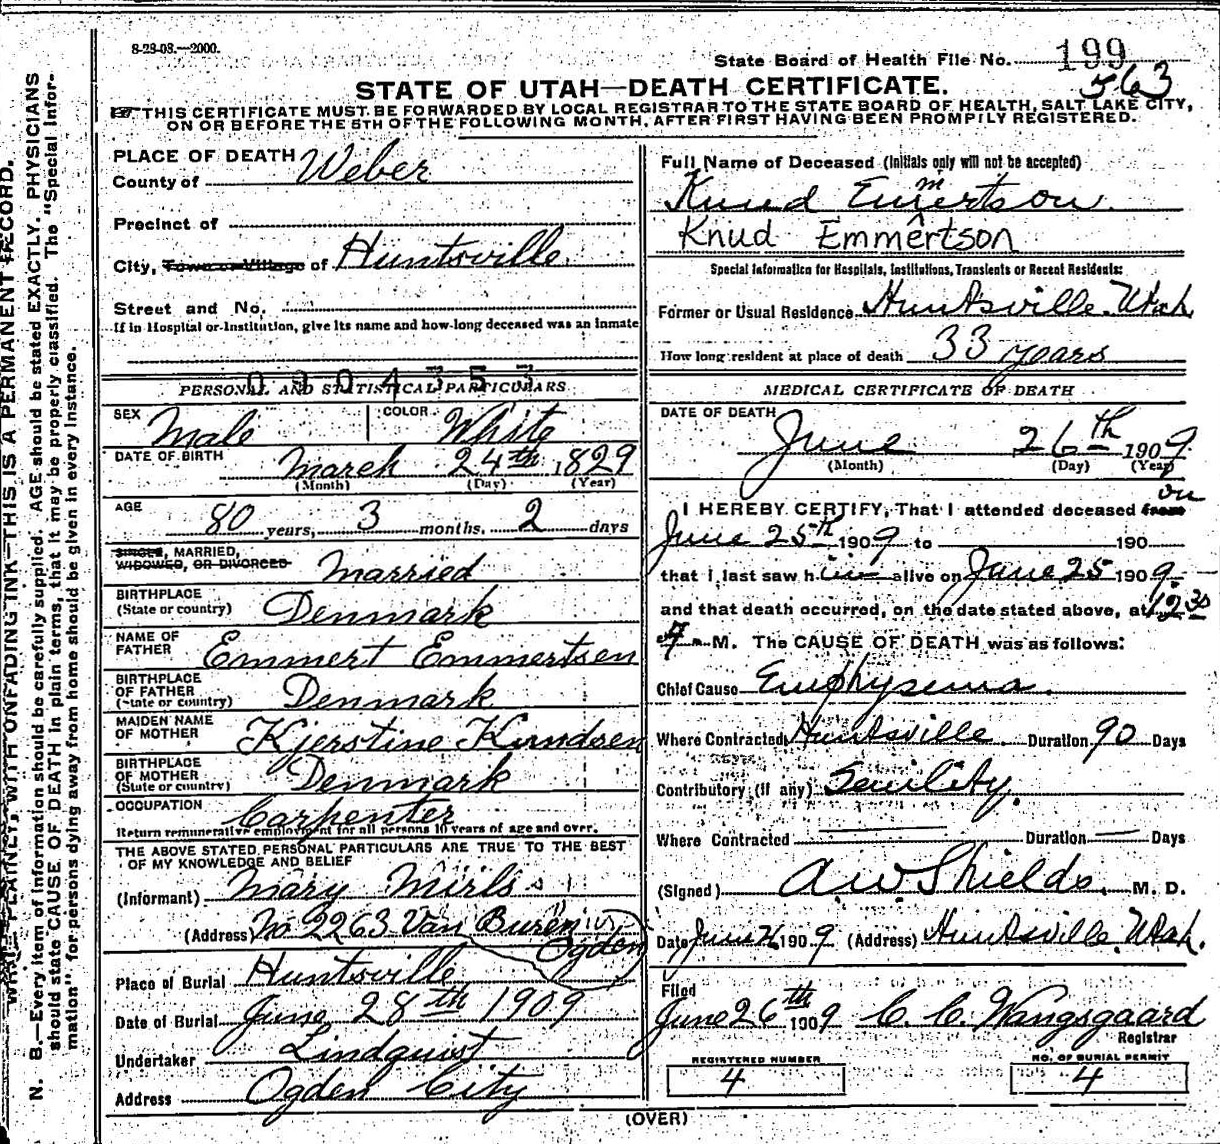 8-28-08.—2000.
State Board of Health File No. 199
563
STATE OF UTAH—DEATH CERTIFICATE.
THIS CERTIFICATE MUST BE FORWARDED BY LOCAL REGISTRAR TO THE STATE BOARD OF HEALTH, SALT LAKE CITY,
ON OR BEFORE THE 5TH OF THE FOLLOWING MONTH, AFTER FIRST HAVING BEEN PROMPTLY REGISTERED.
PLACE OF DEATH
County of Weber
Precinct of
City, Town or Village of Huntsville
Street and No.
If in Hospital or Institution, give its name and how long deceased was an inmate
0904353
PERSONAL AND STATISTICAL PARTICULARS
SEX Male COLOR White
DATE OF BIRTH March 24th 1829
(Month) (Day) (Year)
AGE 80 years, 3 months, 2 days
SINGLE, MARRIED,
WIDOWED, OR DIVORCED Married
BIRTHPLACE
(State or country) Denmark
NAME OF
FATHER Emmert Emmertsen
BIRTHPLACE
OF FATHER
(State or country) Denmark
MAIDEN NAME
OF MOTHER Kjerstine Knudsen
BIRTHPLACE
OF MOTHER
(State or country) Denmark
OCCUPATION Carpenter
Return remunerative employment for all persons 10 years of age and over.
THE ABOVE STATED PERSONAL PARTICULARS ARE TRUE TO THE BEST
OF MY KNOWLEDGE AND BELIEF
(Informant) Mary
(Address) No 2263 Van Buren
Ogden
Place of Burial Huntsville
Date of Burial June 28th 1909
Undertaker Lindquist
Address Ogden City
Full Name of Deceased (Initials only will not be accepted)
Knud Emmertson
Knud Emmertson
Special Information for Hospitals, Institutions, Transients or Recent Residents:
Former or Usual Residence Huntsville. Utah
How long resident at place of death 33 years
MEDICAL CERTIFICATE OF DEATH
DATE OF DEATH
June 26th 1909
(Month) (Day) (Year)
I HEREBY CERTIFY, That I attended deceased from on
June 25th 1909 to 190
that I last saw him alive on June 25 1909
and that death occurred, on the date stated above, at 12 30
A. M. The CAUSE OF DEATH was as follows:
Chief Cause Emphysema.
Where Contracted Huntsville. Duration 90 Days
Contributory (if any) Senility
Where Contracted Duration — Days
(Signed) A W Shields, M. D.
Date June 26 1909 (Address) Huntsville. Utah.
Filed
June 26th 1909 C. C. Wangsgaard
Registrar
REGISTERED NUMBER
4
NO. OF BURIAL PERMIT
4
(OVER)
WRITE PLAINLY, WITH UNFADING INK—THIS IS A PERMANENT RECORD.
N. B.—Every item of information should be carefully supplied. AGE should be stated EXACTLY. PHYSICIANS
should state CAUSE OF DEATH in plain terms, that it may be properly classified. The "Special Infor-
mation" for persons dying away from home should be given in every instance.